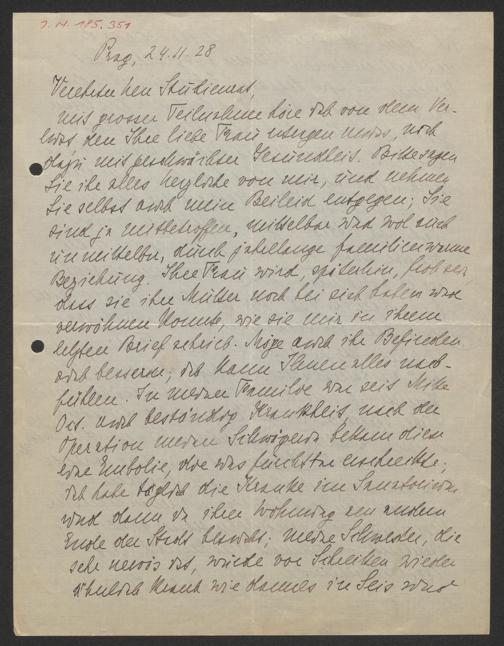 J. N. 185.351
Prag, 24.11.28
Verehrter Herr Studienrat,
mit grosser Teilnahme höre ich von dem Ver-
lust, den Ihre liebe Frau, noch
dazu mit geschwächter Gesundheit. Bitte sagen
Sie ihr alles herzliche von mir, und nehmen
Sie selbst auch mein Beileid entgegen; Sie
sind ja mitbetroffen, mittelbar und wol auch
unmittelbar, durch jahrelange familienwarme
Beziehung. Ihre Frau wird, späterhin, froh sein,
dass sie ihre Mutter noch bei sich haben und
verwöhnen konnte, wie sie mir in ihrem
letzten Brief schrieb. Möge auch ihr Befinden
sich bessern; ich kann Ihnen alles nach-
fühlen. In meiner Familie war seit Mitte
Oct. auch beständig Krankheit, nach der
Operation meiner Schwägerin bekam diese
eine Embolie, die uns furchtbar erschreckte;
ich habe täglich die Kranke im Sanatorium
und dann in ihrer Wohnung am andern
Ende der Stadt besucht; meine Schwester, die
sehr nervös ist, wurde vor Schrecken wieder
ähnlich krank wie damals in Seis und